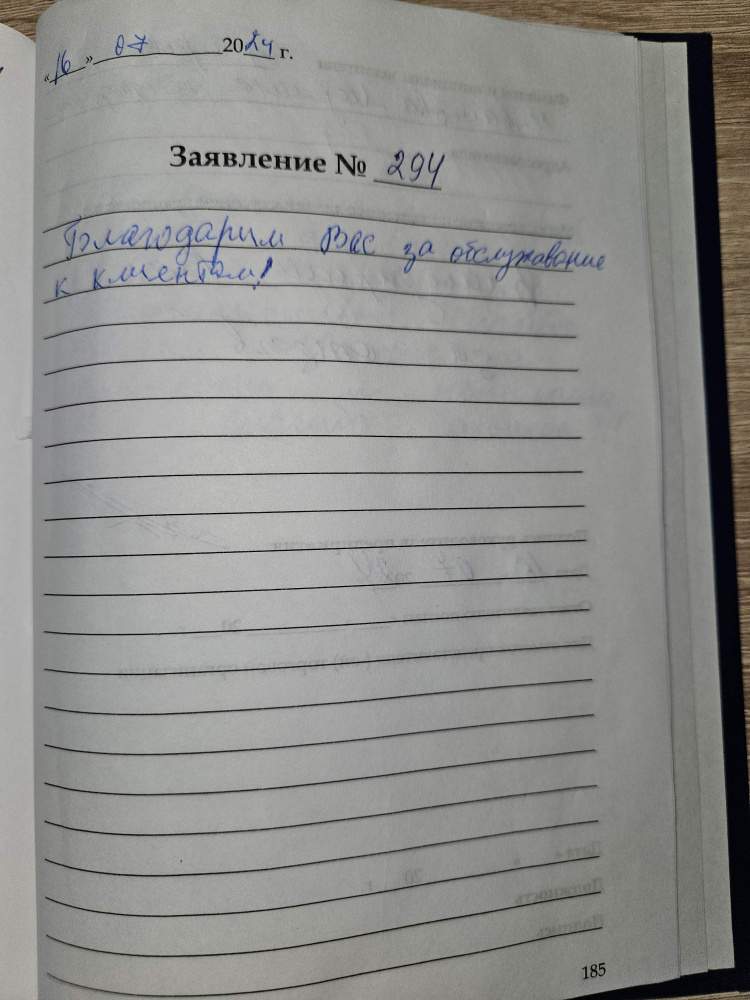 «16» 07 2024 г.
Заявление № 294
Благодарим Вас за обслужавание
к клиентам!
185